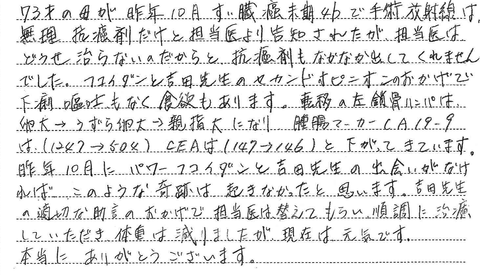 73才の母が昨年10月すい臓癌末期4bで手術放射線は
無理 抗癌剤だけと担当医より告知されたが、担当医は
どうせ治らないのだからと、抗癌剤もなかなか出してくれません
でした。フコイダンと吉田先生のセカンドオピニオンのおかげで
下痢 嘔吐もなく食欲もあります。転移の左鎖骨リンパは
卵大→うずら卵大→親指大になり 腫瘍マーカーCA19-9
は(1247→504) CEAは(1147→146)と下がってきています。
昨年10月にパワーフコイダンと吉田先生の出会いがなけ
れば このような奇跡は起きなかったと思います。吉田先生
の適切な助言のおかげで担当医は替えてもらい順調に治療
していただき 体重は減りましたが 現在は元気です。
本当に ありがとうございます。